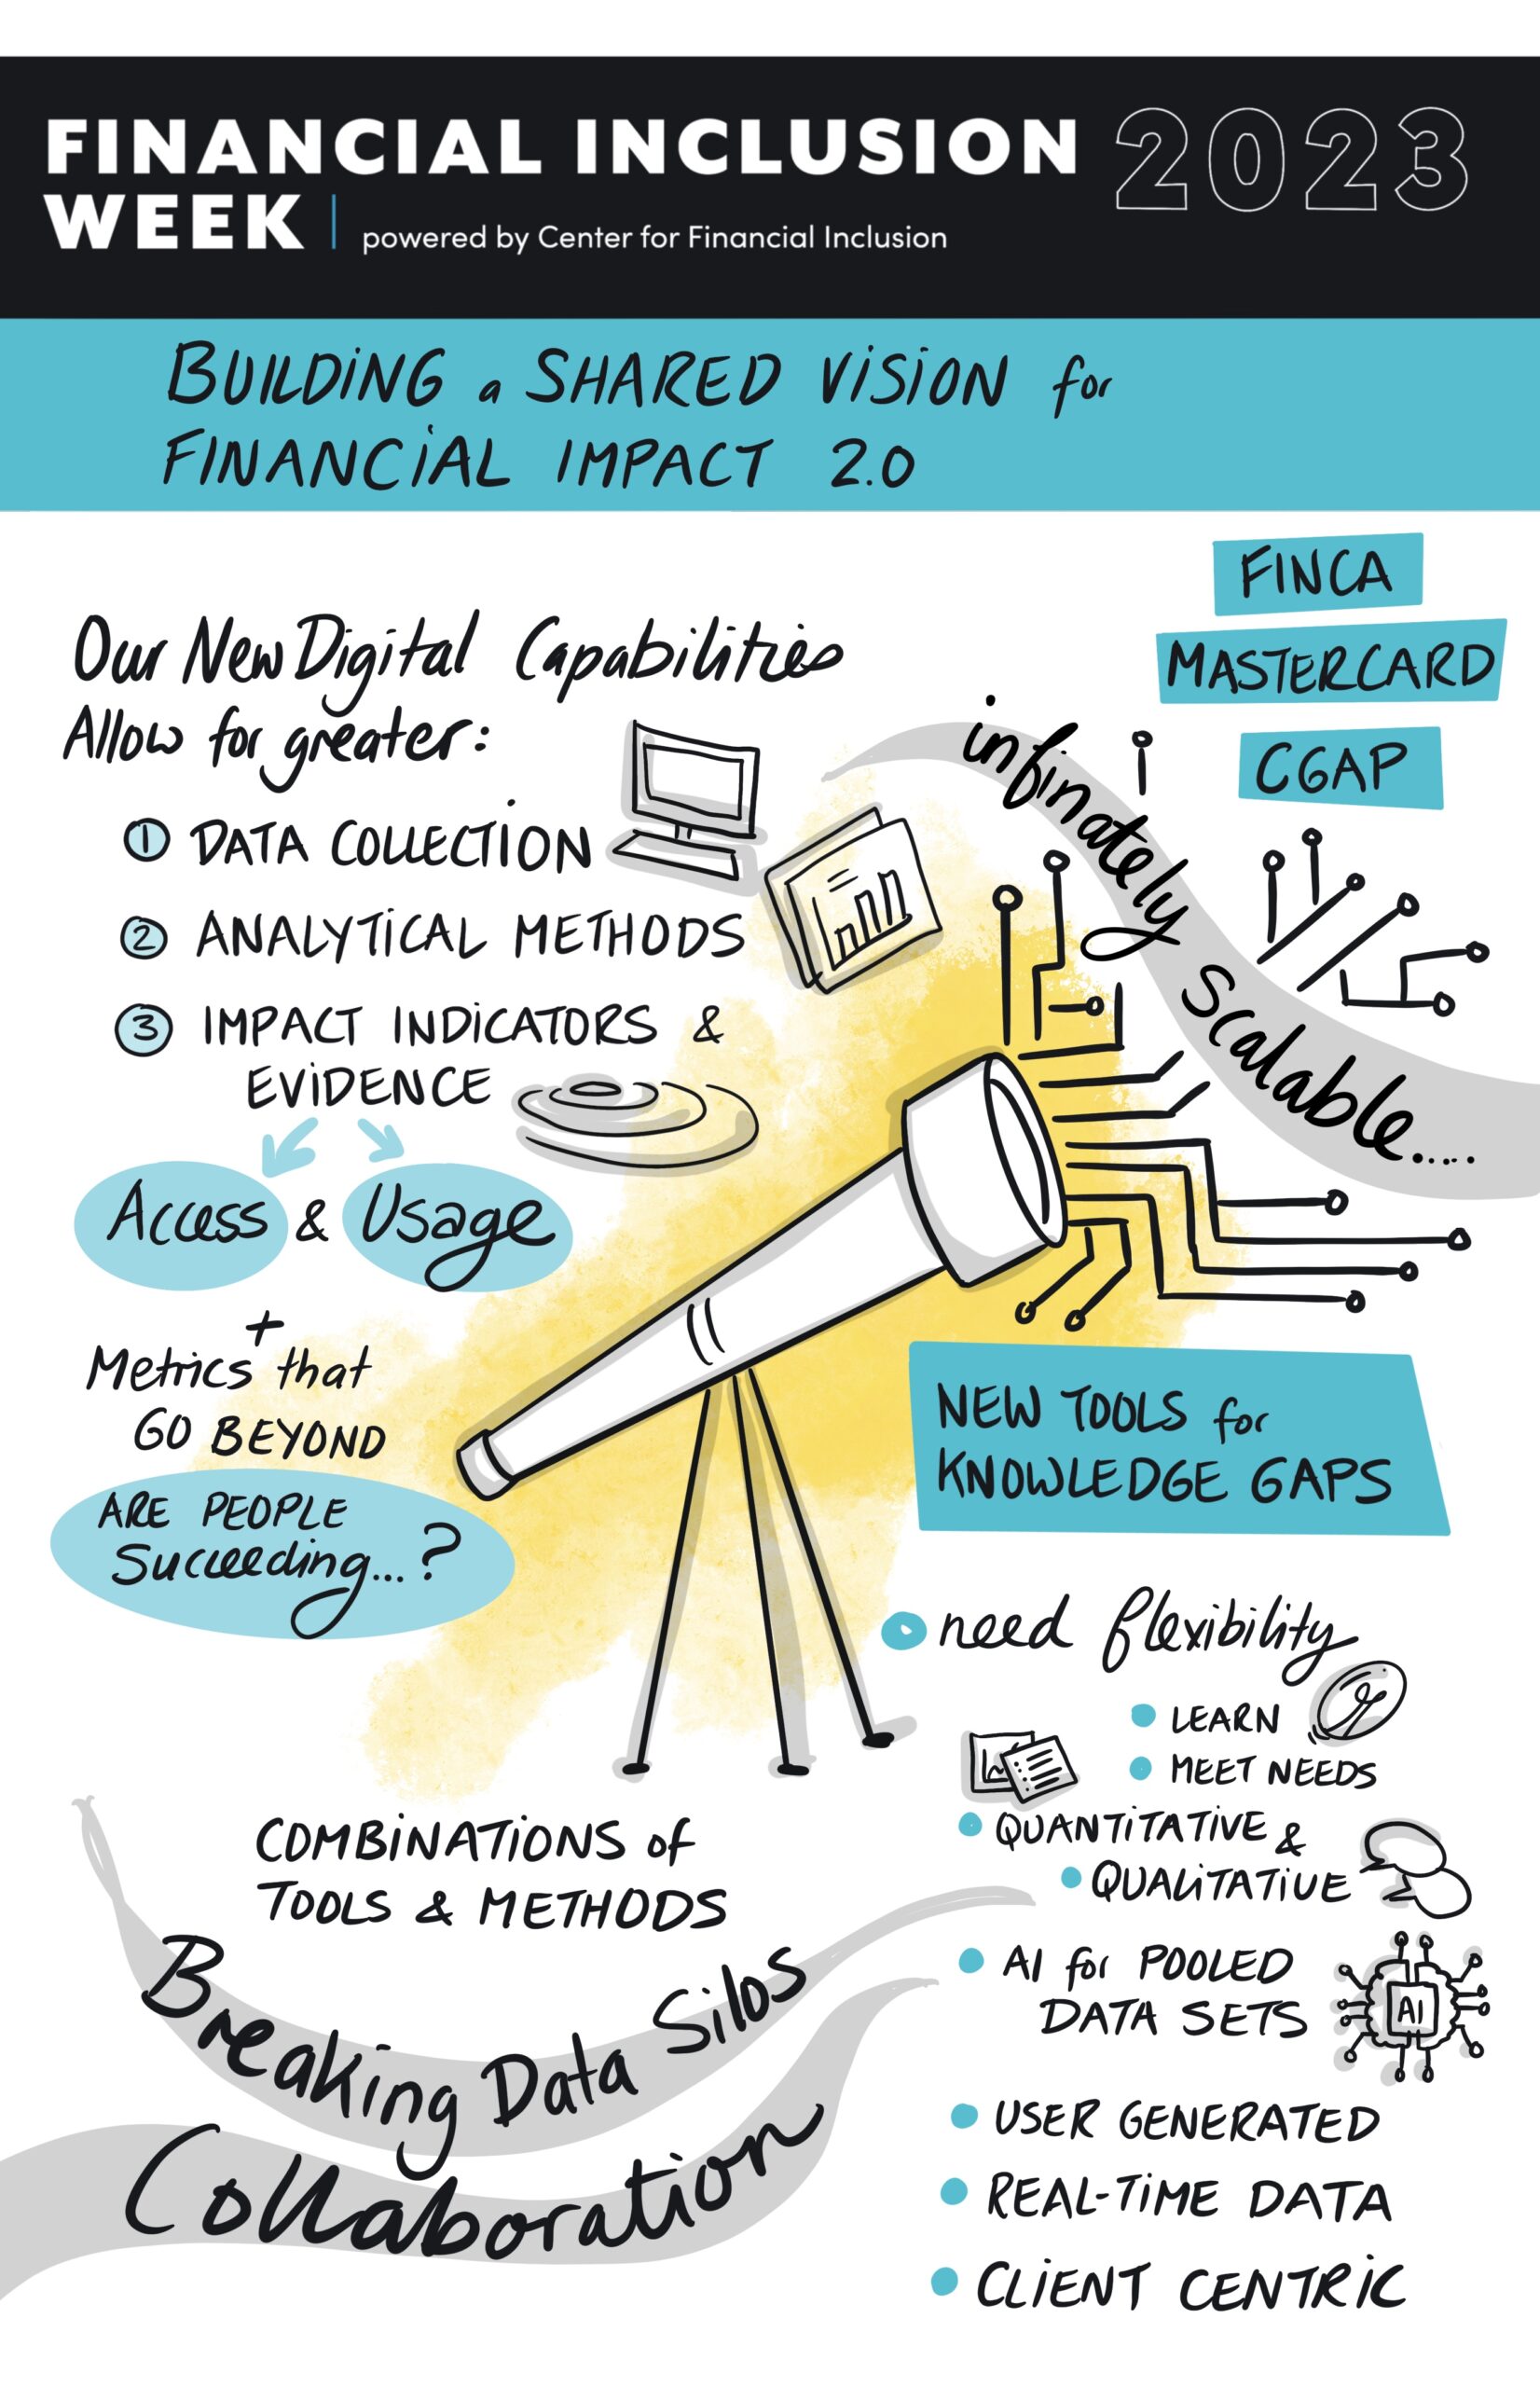 FINANCIAL INCLUSION 2023
WEEK | powered by Center for Financial Inclusion
BUILDING a SHARED VISION for
FINANCIAL IMPACT 2.0
FINCA
MASTERCARD
CGAP
Our New Digital Capabilities
Allow for greater:
1 DATA COLLECTION
2 ANALYTICAL METHODS
3 IMPACT INDICATORS &
EVIDENCE
Access & Usage
+
Metrics that
GO BEYOND
ARE PEOPLE
Succeeding...?
infinately scalable.....
NEW TOOLS for
KNOWLEDGE GAPS
need flexibility
LEARN
MEET NEEDS
QUANTITATIVE &
QUALITATIVE
AI for POOLED
DATA SETS
AI
USER GENERATED
REAL-TIME DATA
CLIENT CENTRIC
COMBINATIONS of
TOOLS & METHODS
Breaking Data Silos
Collaboration